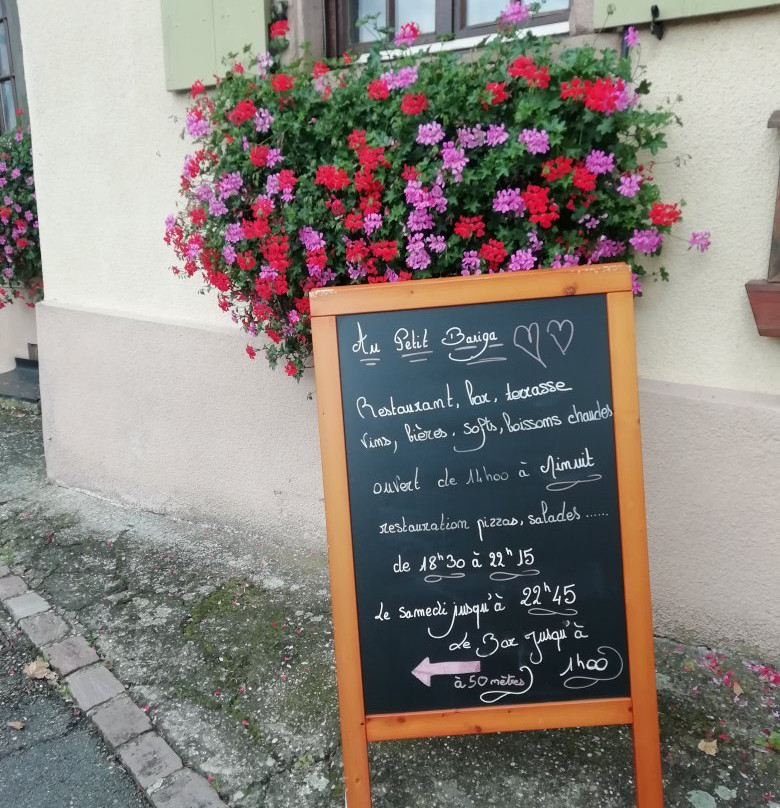 Au Petit Bariga
Restaurant, bar, terrasse
Vins, bières, softs, boissons chaudes
ouvert de 14h00 à Minuit
restauration pizzas, salades......
de 18h30 à 22h15
Le samedi jusqu'à 22h45
Le Bar jusqu'à
1h00
à 50 mètres